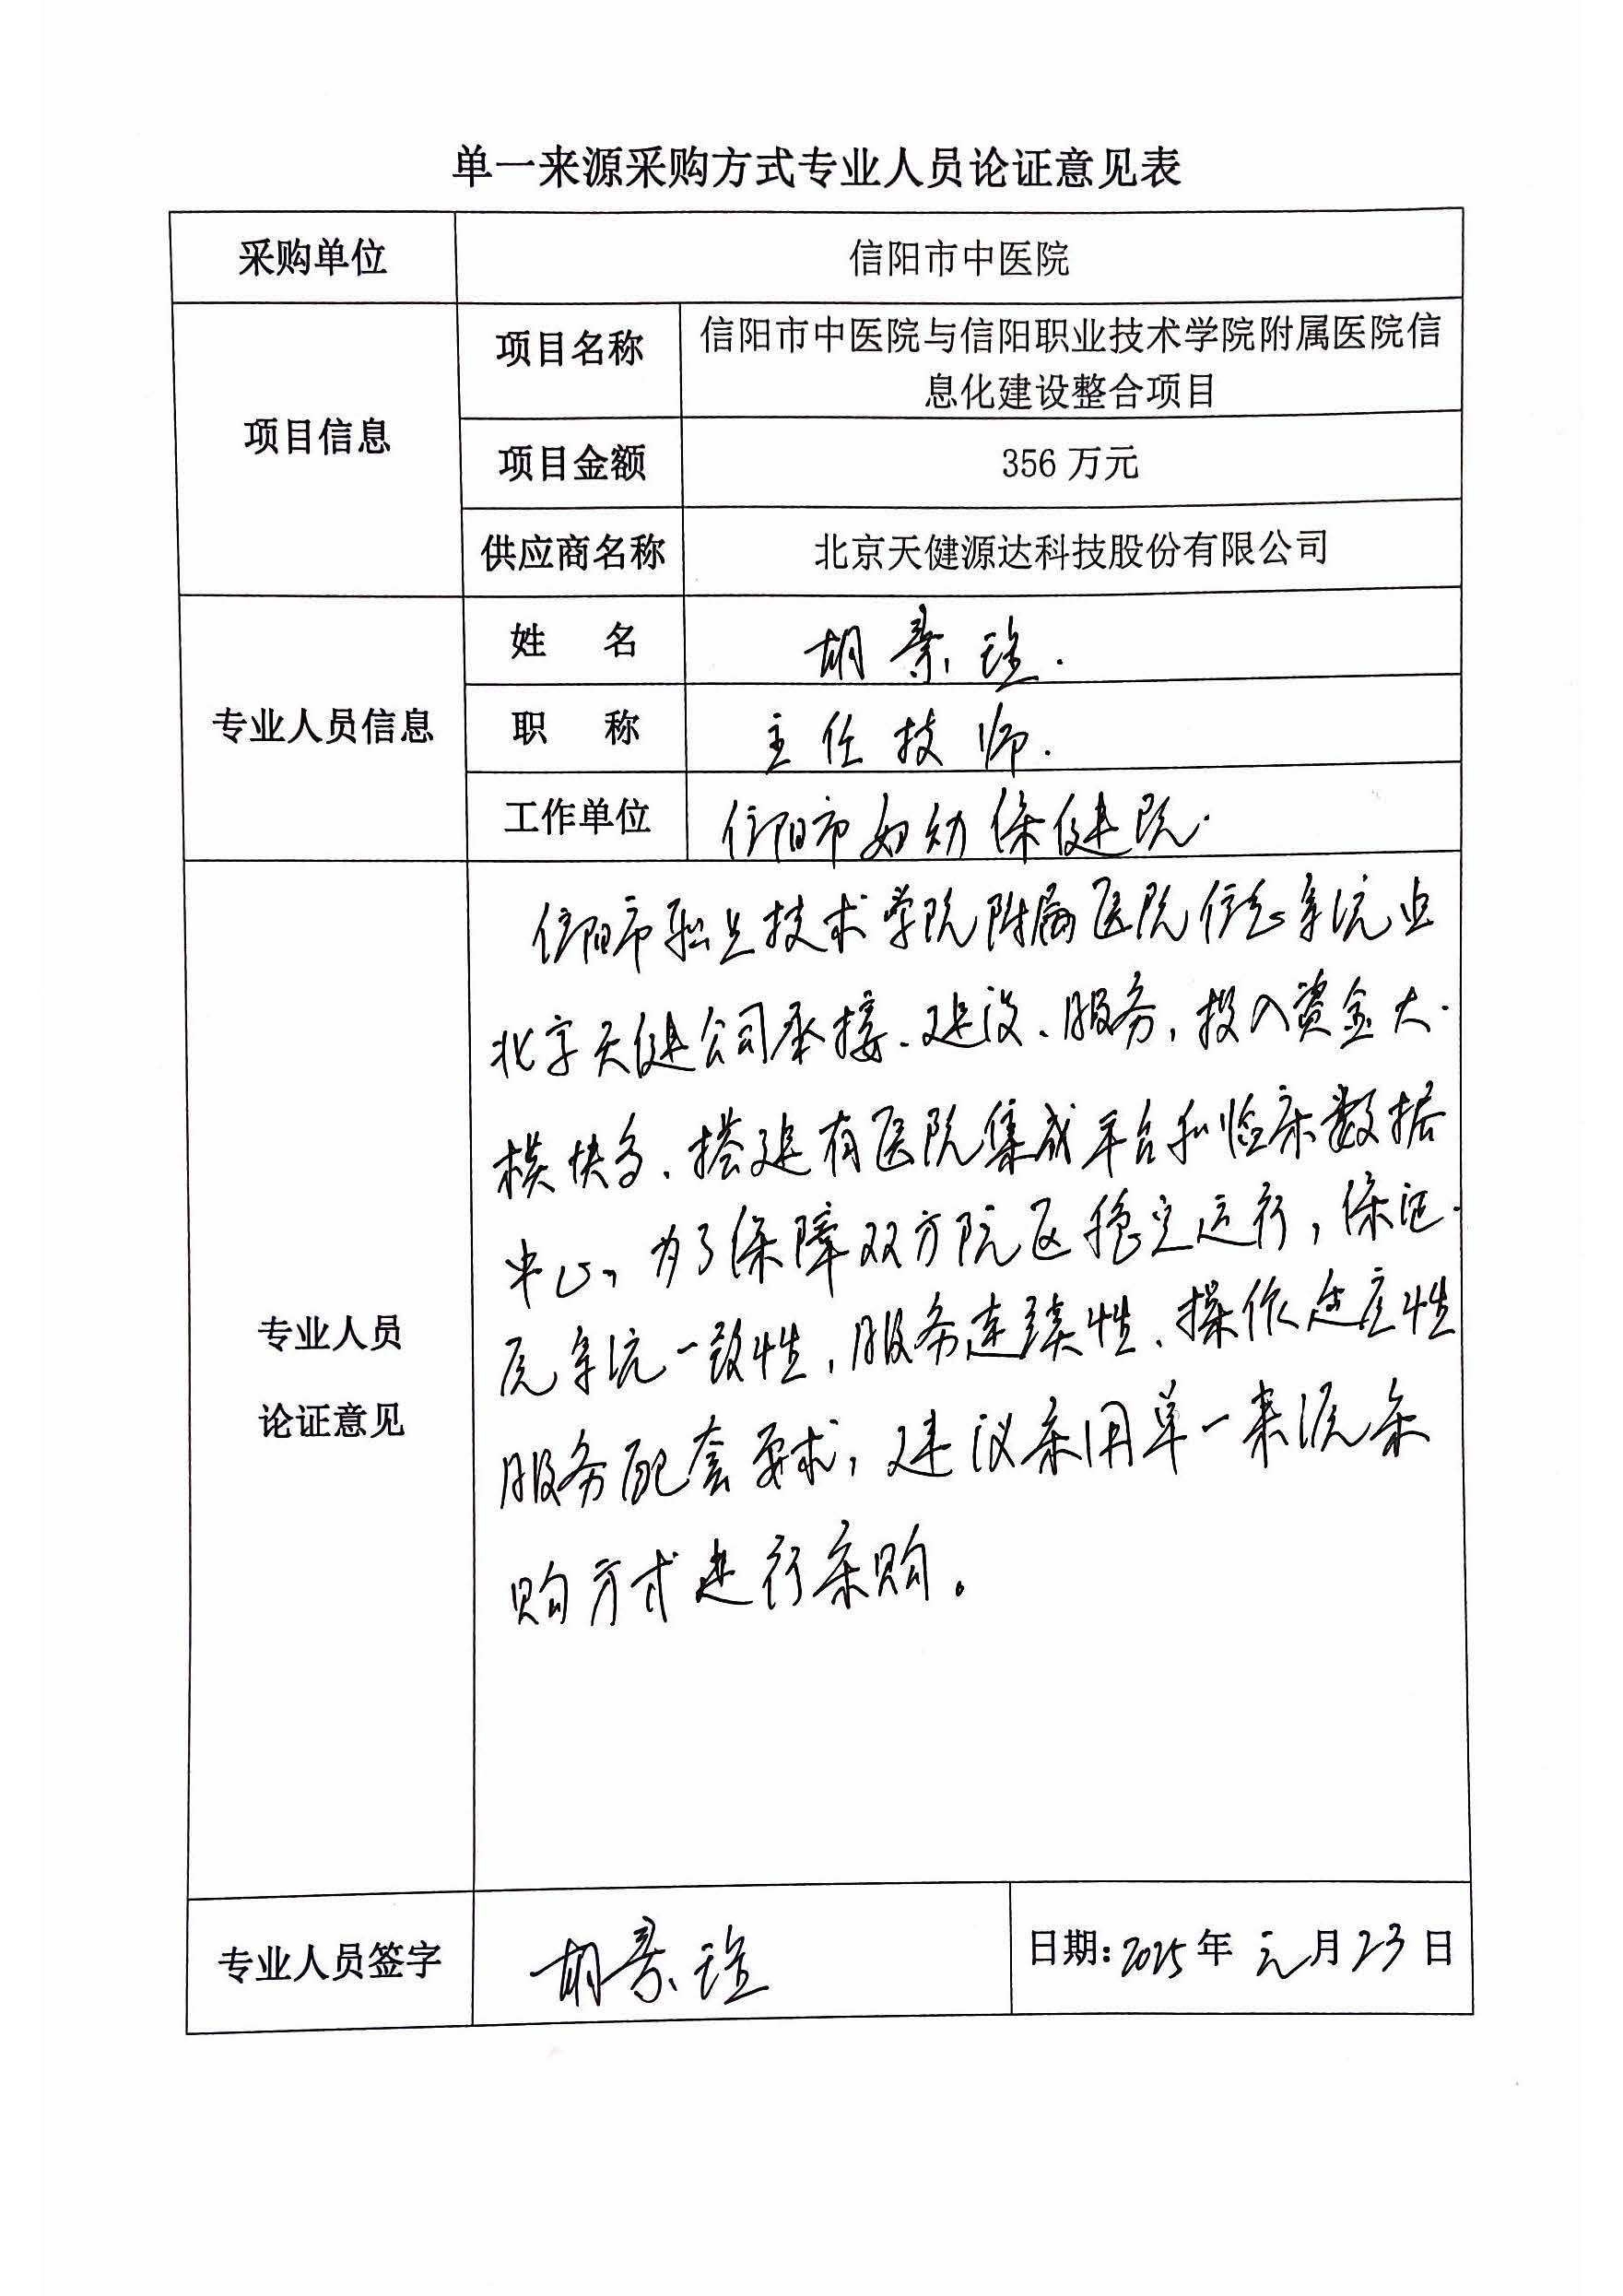 单一来源采购方式专业人员论证意见表
采购单位
信阳市中医院
项目信息
项目名称
信阳市中医院与信阳职业技术学院附属医院信
息化建设整合项目
项目金额
356 万元
供应商名称
北京天健源达科技股份有限公司
专业人员信息
姓 名
胡景
职 称
主任技师.
工作单位
信阳市妇幼保健院.
专业人员
论证意见
信阳市职业技术学院附属医院信息系统
北京天健公司承接、建设、服务,投入资金大.
模块多、搭建有医院集成平台和临床数据
中心,为了保障双方院区稳定运行,保证.
原系统一致性,服务连续性、操作适应性
服务配套要求,建议采用单一来源采
购方式进行采购。
专业人员签字
胡景
日期:2025年 元月23日